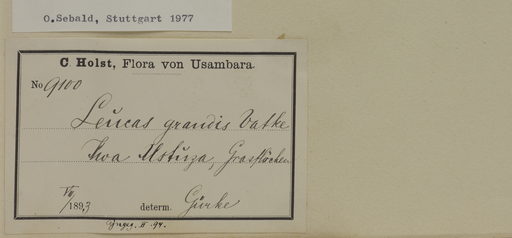 O.Sebald, Stuttgart 1977
C. Holst, Flora von Usambara.
No 9100
Leucas grandis Vatke
Kwa Mstuza, Grasflächen
VII/1893 determ. Gürke
II. 94.